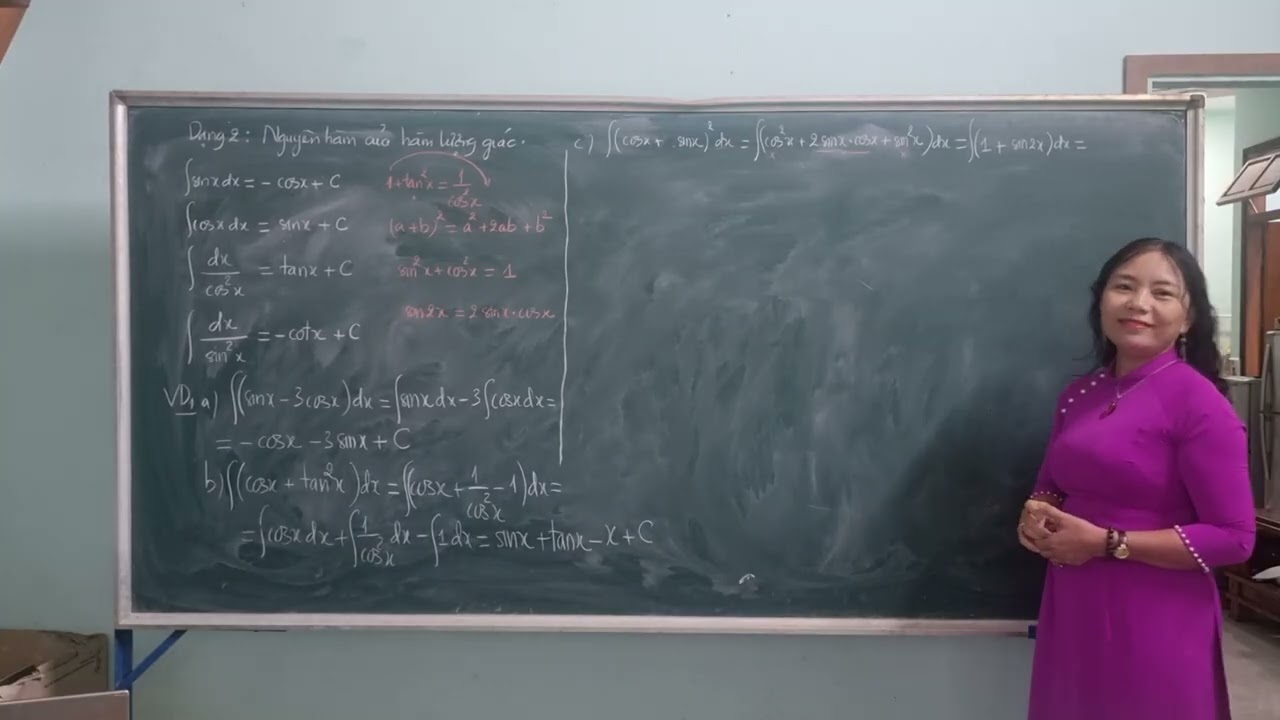 Dạng 2: Nguyên hàm của hàm lượng giác.
∫sinx dx = - cosx + C
∫cosx dx = sinx + C
∫dx/cos²x = tanx + C
∫dx/sin²x = -cotx + C
1+tan²x = 1/cos²x
(a+b)² = a²+2ab+b²
sin²x+cos²x = 1
sin2x = 2 sinx·cosx
VD₁ a) ∫(sinx - 3cosx)dx = ∫sinx dx - 3∫cosx dx =
= - cosx - 3sinx + C
b) ∫(cosx + tan²x)dx = ∫(cosx + 1/cos²x - 1)dx =
= ∫cosx dx + ∫1/cos²x dx - ∫1dx = sinx + tanx - x + C
c) ∫(cosx + sinx)²dx = ∫(cos²x + 2 sinx·cosx + sin²x)dx = ∫(1 + sin2x)dx =